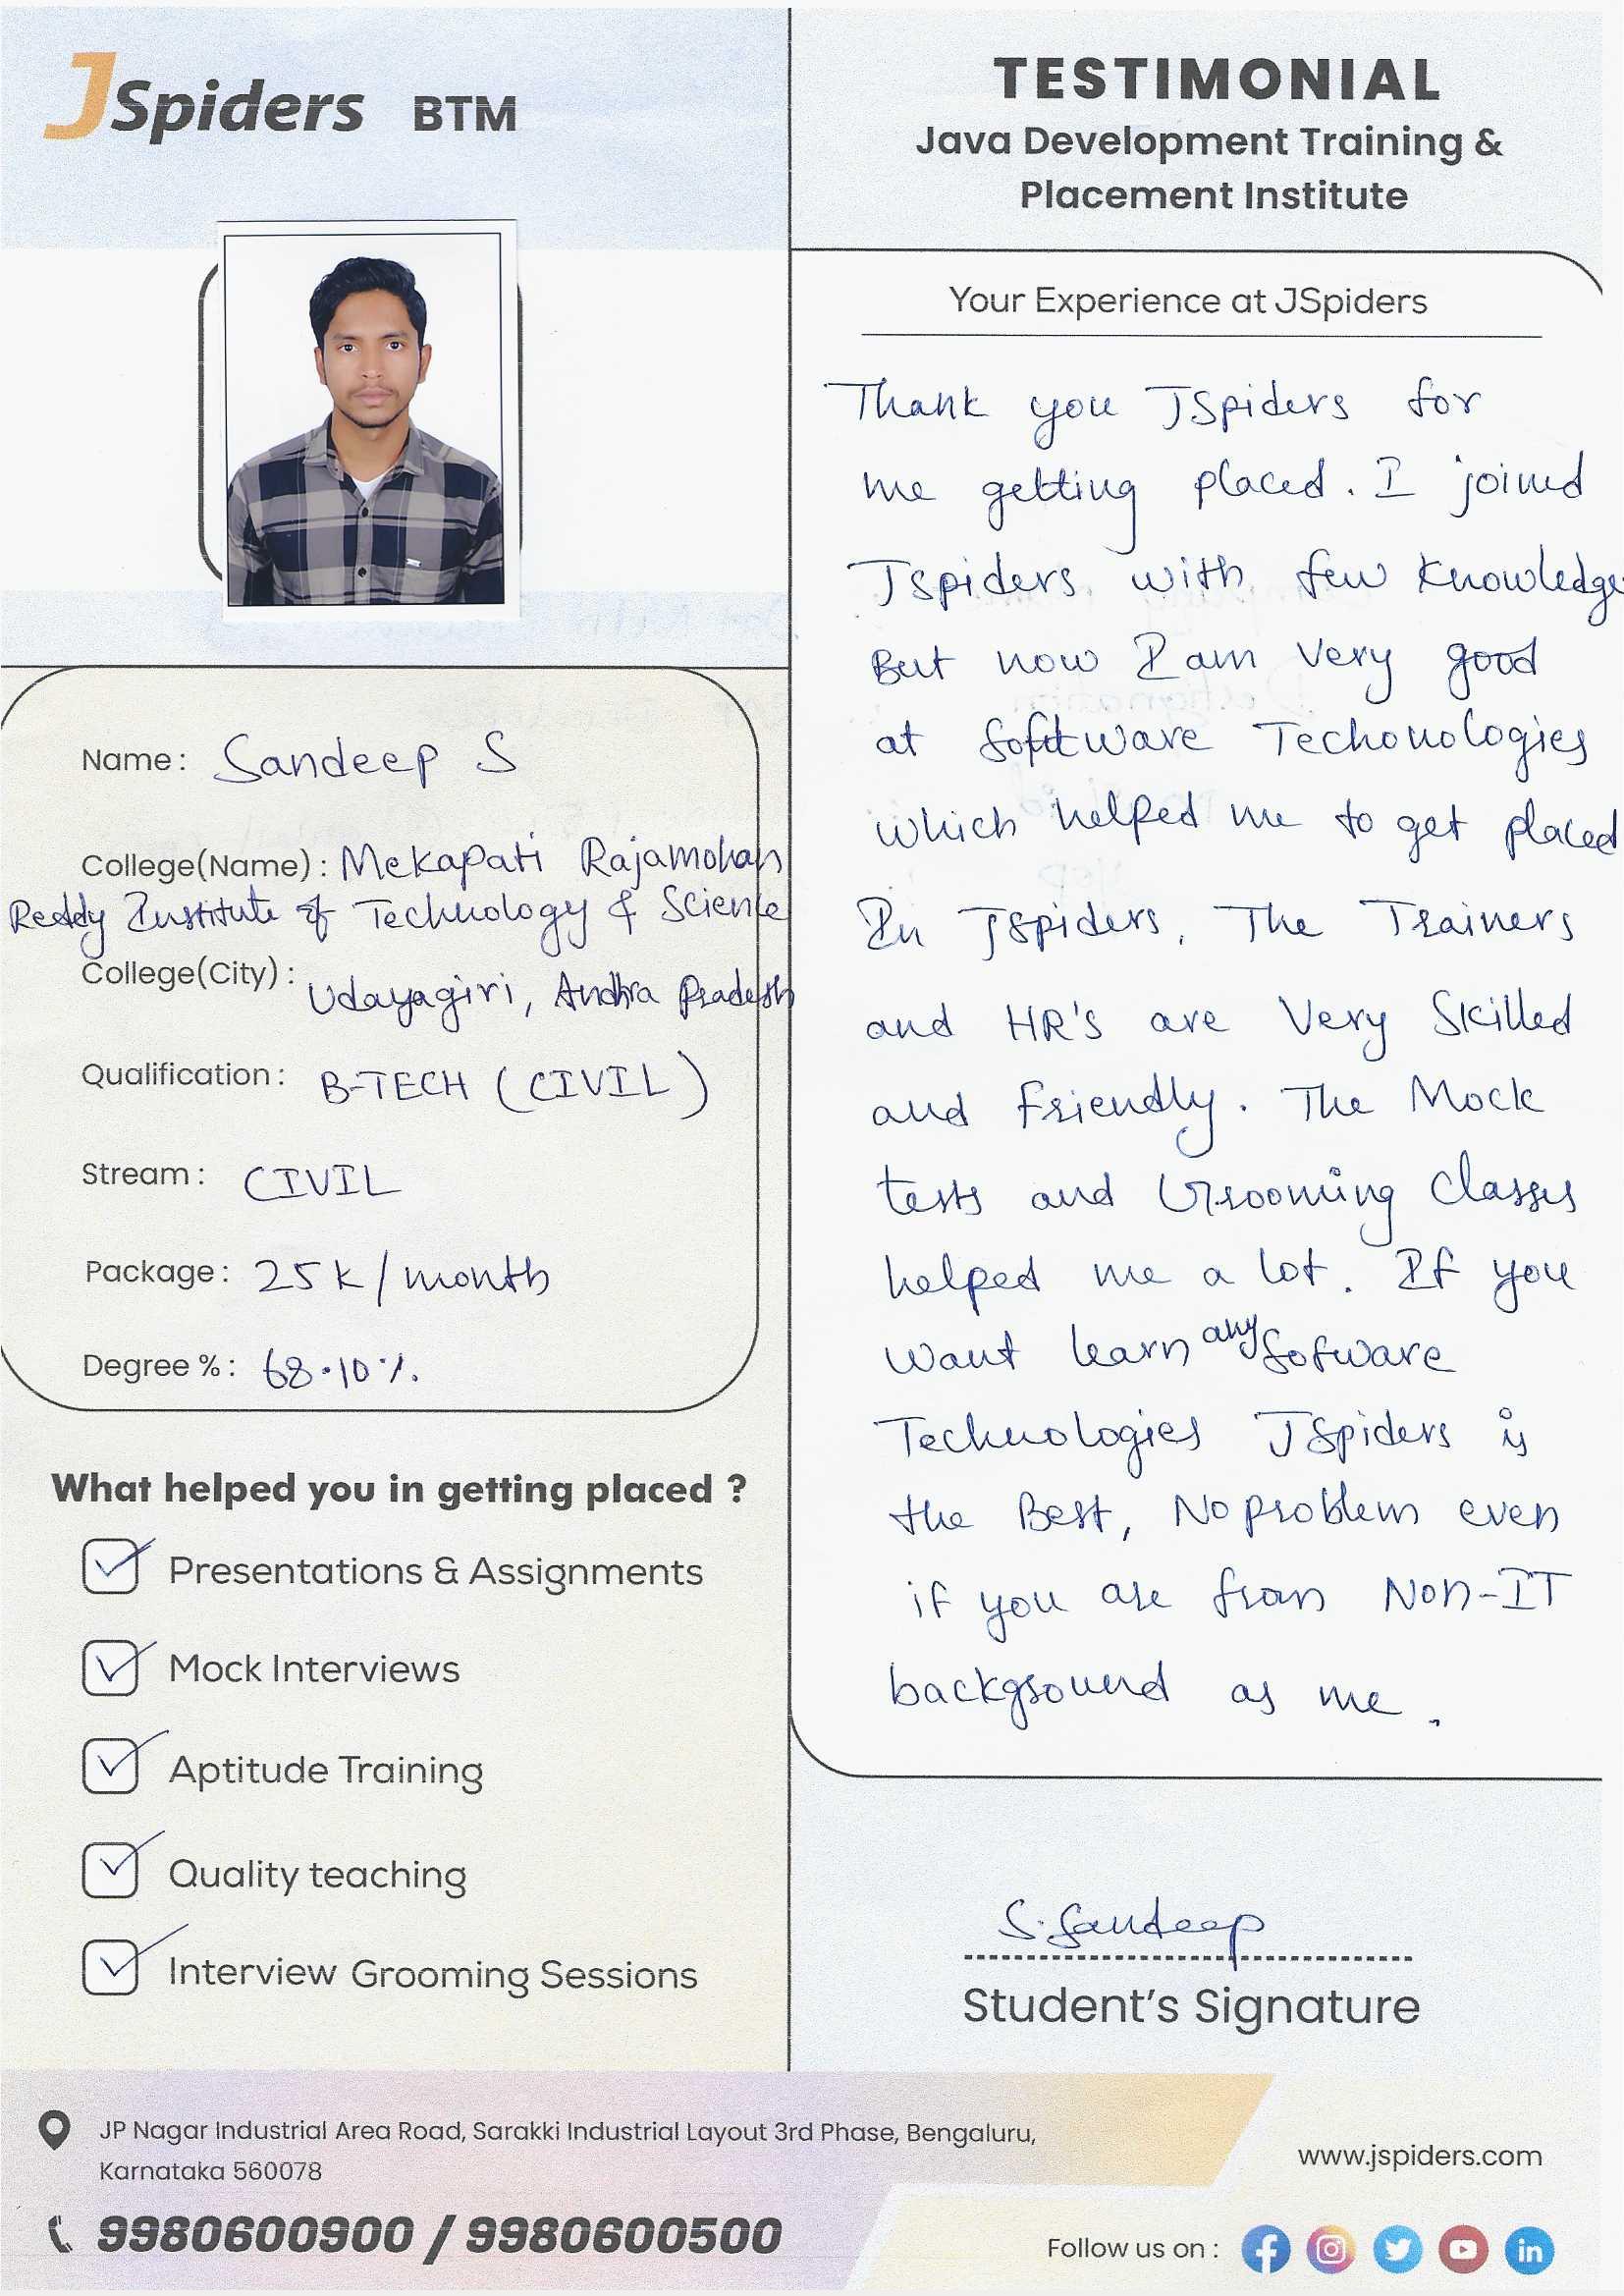 JSpiders BTM
TESTIMONIAL
Java Development Training &
Placement Institute
Name : Sandeep S
College(Name) : Mekapati Rajamohan
Reddy Institute of Technology & Science
College(City) : Udayagiri, Andhra Pradesh
Qualification : B-TECH (CIVIL)
Stream : CIVIL
Package : 25k/month
Degree % : 68.10%.
What helped you in getting placed ?
Presentations & Assignments
Mock Interviews
Aptitude Training
Quality teaching
Interview Grooming Sessions
Your Experience at JSpiders
Thank you JSpiders for
me getting placed. I joined
Jspiders with few knowledge
But now I am very good
at Software Techonologies
which helped me to get placed
In Jspiders, The Trainers
and HR's are Very Skilled
and Friendly. The Mock
tests and Grooming Classes
helped me a lot. If you
want learn any Sofware
Technologies JSpiders is
the Best, No problem even
if you are from Non-IT
background as me.
S.Sandeep
Student's Signature
JP Nagar Industrial Area Road, Sarakki Industrial Layout 3rd Phase, Bengaluru,
Karnataka 560078
9980600900 / 9980600500
www.jspiders.com
Follow us on :